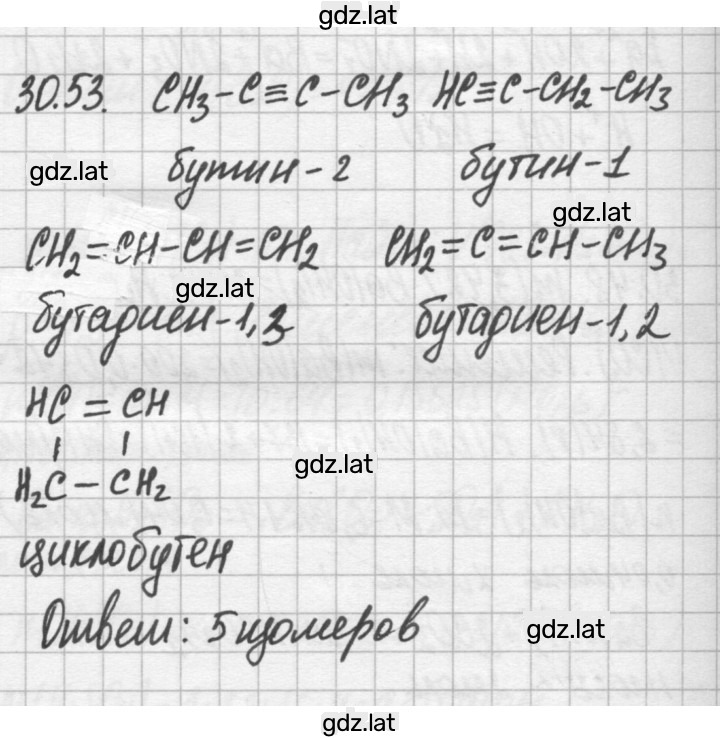 gdz.lat
30.53. CH₃-C≡C-CH₃ HC≡C-CH₂-CH₃
gdz.lat
бутин-2 бутин-1
gdz.lat
CH₂=CH-CH=CH₂ CH₂=C=CH-CH₃
gdz.lat
бутадиен-1,3 бутадиен-1,2
HC=CH
| |
gdz.lat
H₂C-CH₂
циклобутен
Ответ: 5 изомеров
gdz.lat
gdz.lat